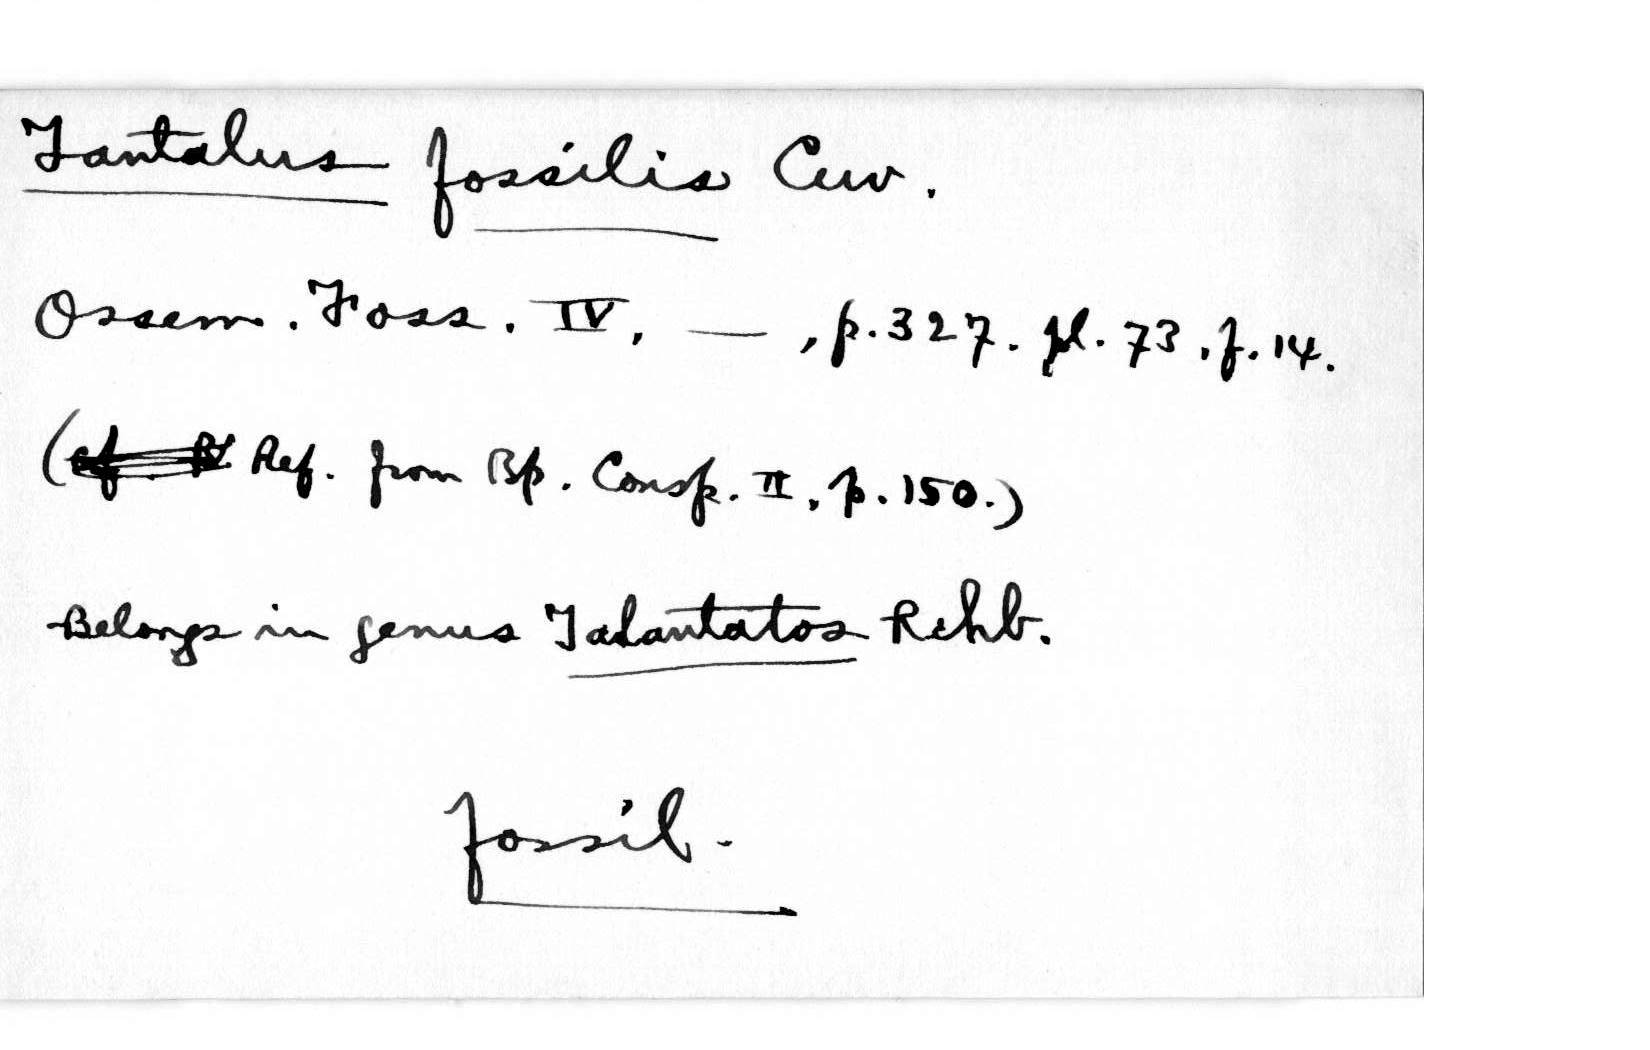 Tantalus fossilis Cuv.
Ossem. Foss. IV, — , p. 327. pl. 73, f. 14.
(Ref. from Bp. Consp. II, p. 150.)
Belongs in genus Talantatos Rchb.
fossil.